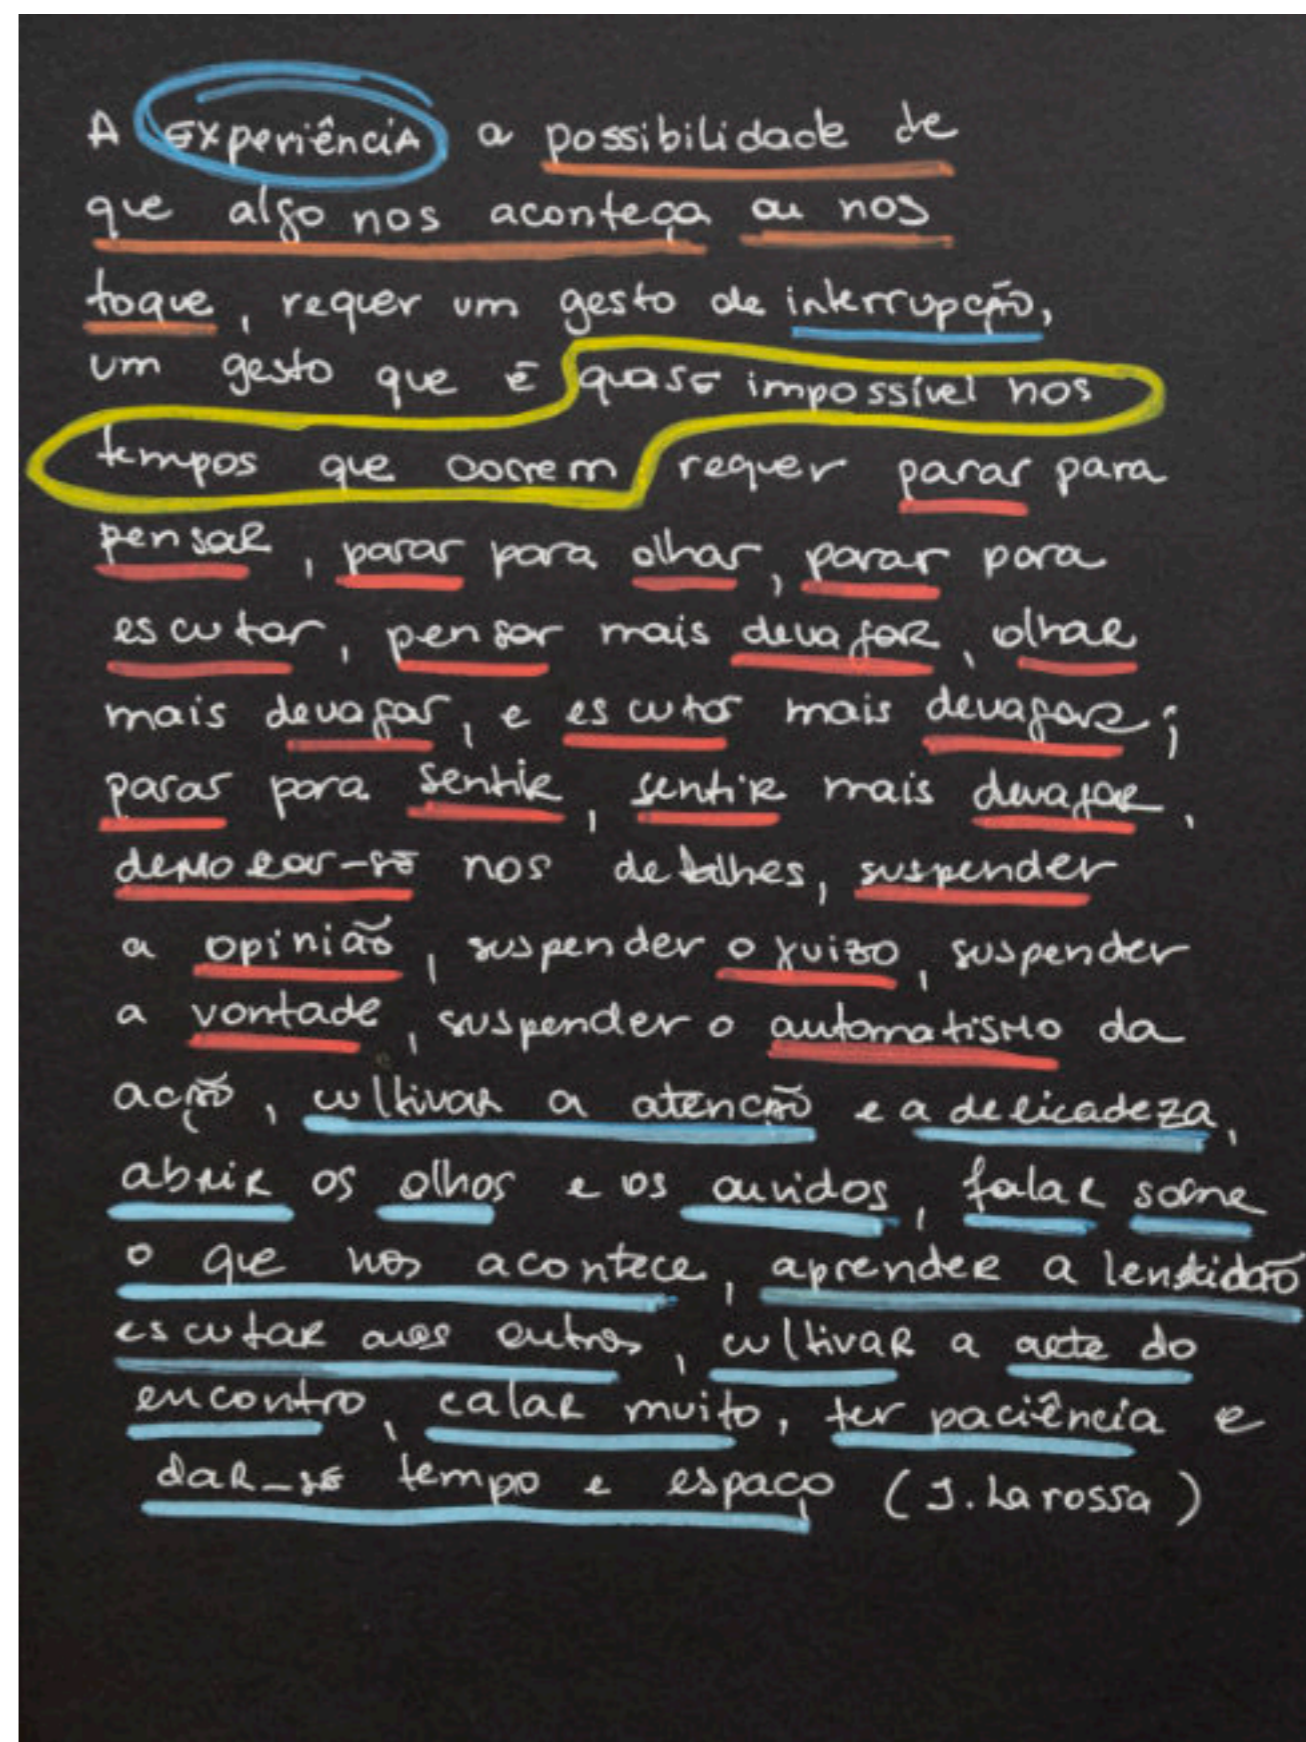 A experiência a possibilidade de
que algo nos aconteça ou nos
toque, requer um gesto de interrupção,
um gesto que é quase impossível nos
tempos que correm requer parar para
pensar, parar para olhar, parar para
escutar, pensar mais devagar, olhar
mais devagar, e escutar mais devagar;
parar para sentir, sentir mais devagar,
demorar-se nos detalhes, suspender
a opinião, suspender o juizo, suspender
a vontade, suspender o automatismo da
ação, cultivar a atenção e a delicadeza,
abrir os olhos e os ouvidos, falar sobre
o que nos acontece, aprender a lentidão
escutar aos outros, cultivar a arte do
encontro, calar muito, ter paciência e
dar-se tempo e espaço (J. Larossa)